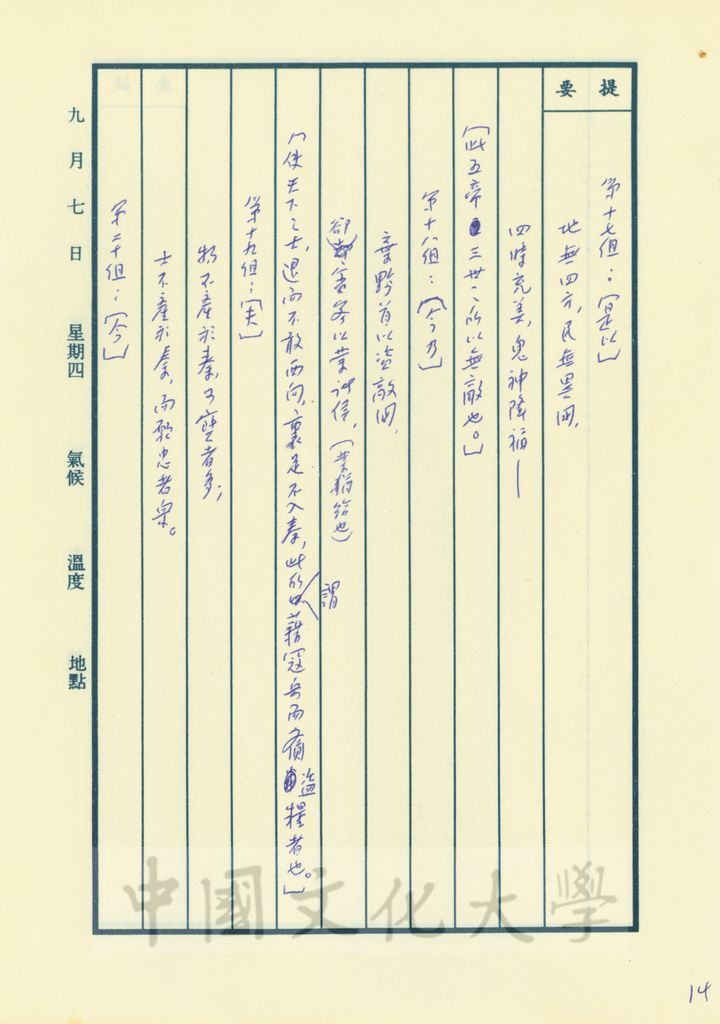 提要
第十七組：「是以」
地無四方，民無異國，
四時充美，鬼神降福—
「此五帝三世之所以無敵也。」
第十八組：「今乃」
棄黔首以資敵國，
卻賓客以業諸侯，（業猶給也）
「使天下之士，退而不敢西向，裹足不入秦，此所謂藉寇兵而齎盜糧者也。」
第十九組：「夫」
物不產於秦，可寶者多；
士不產於秦，而願忠者眾。
第二十組：「今」
九月七日 星期四 氣候 溫度 地點
中國文化大學
14